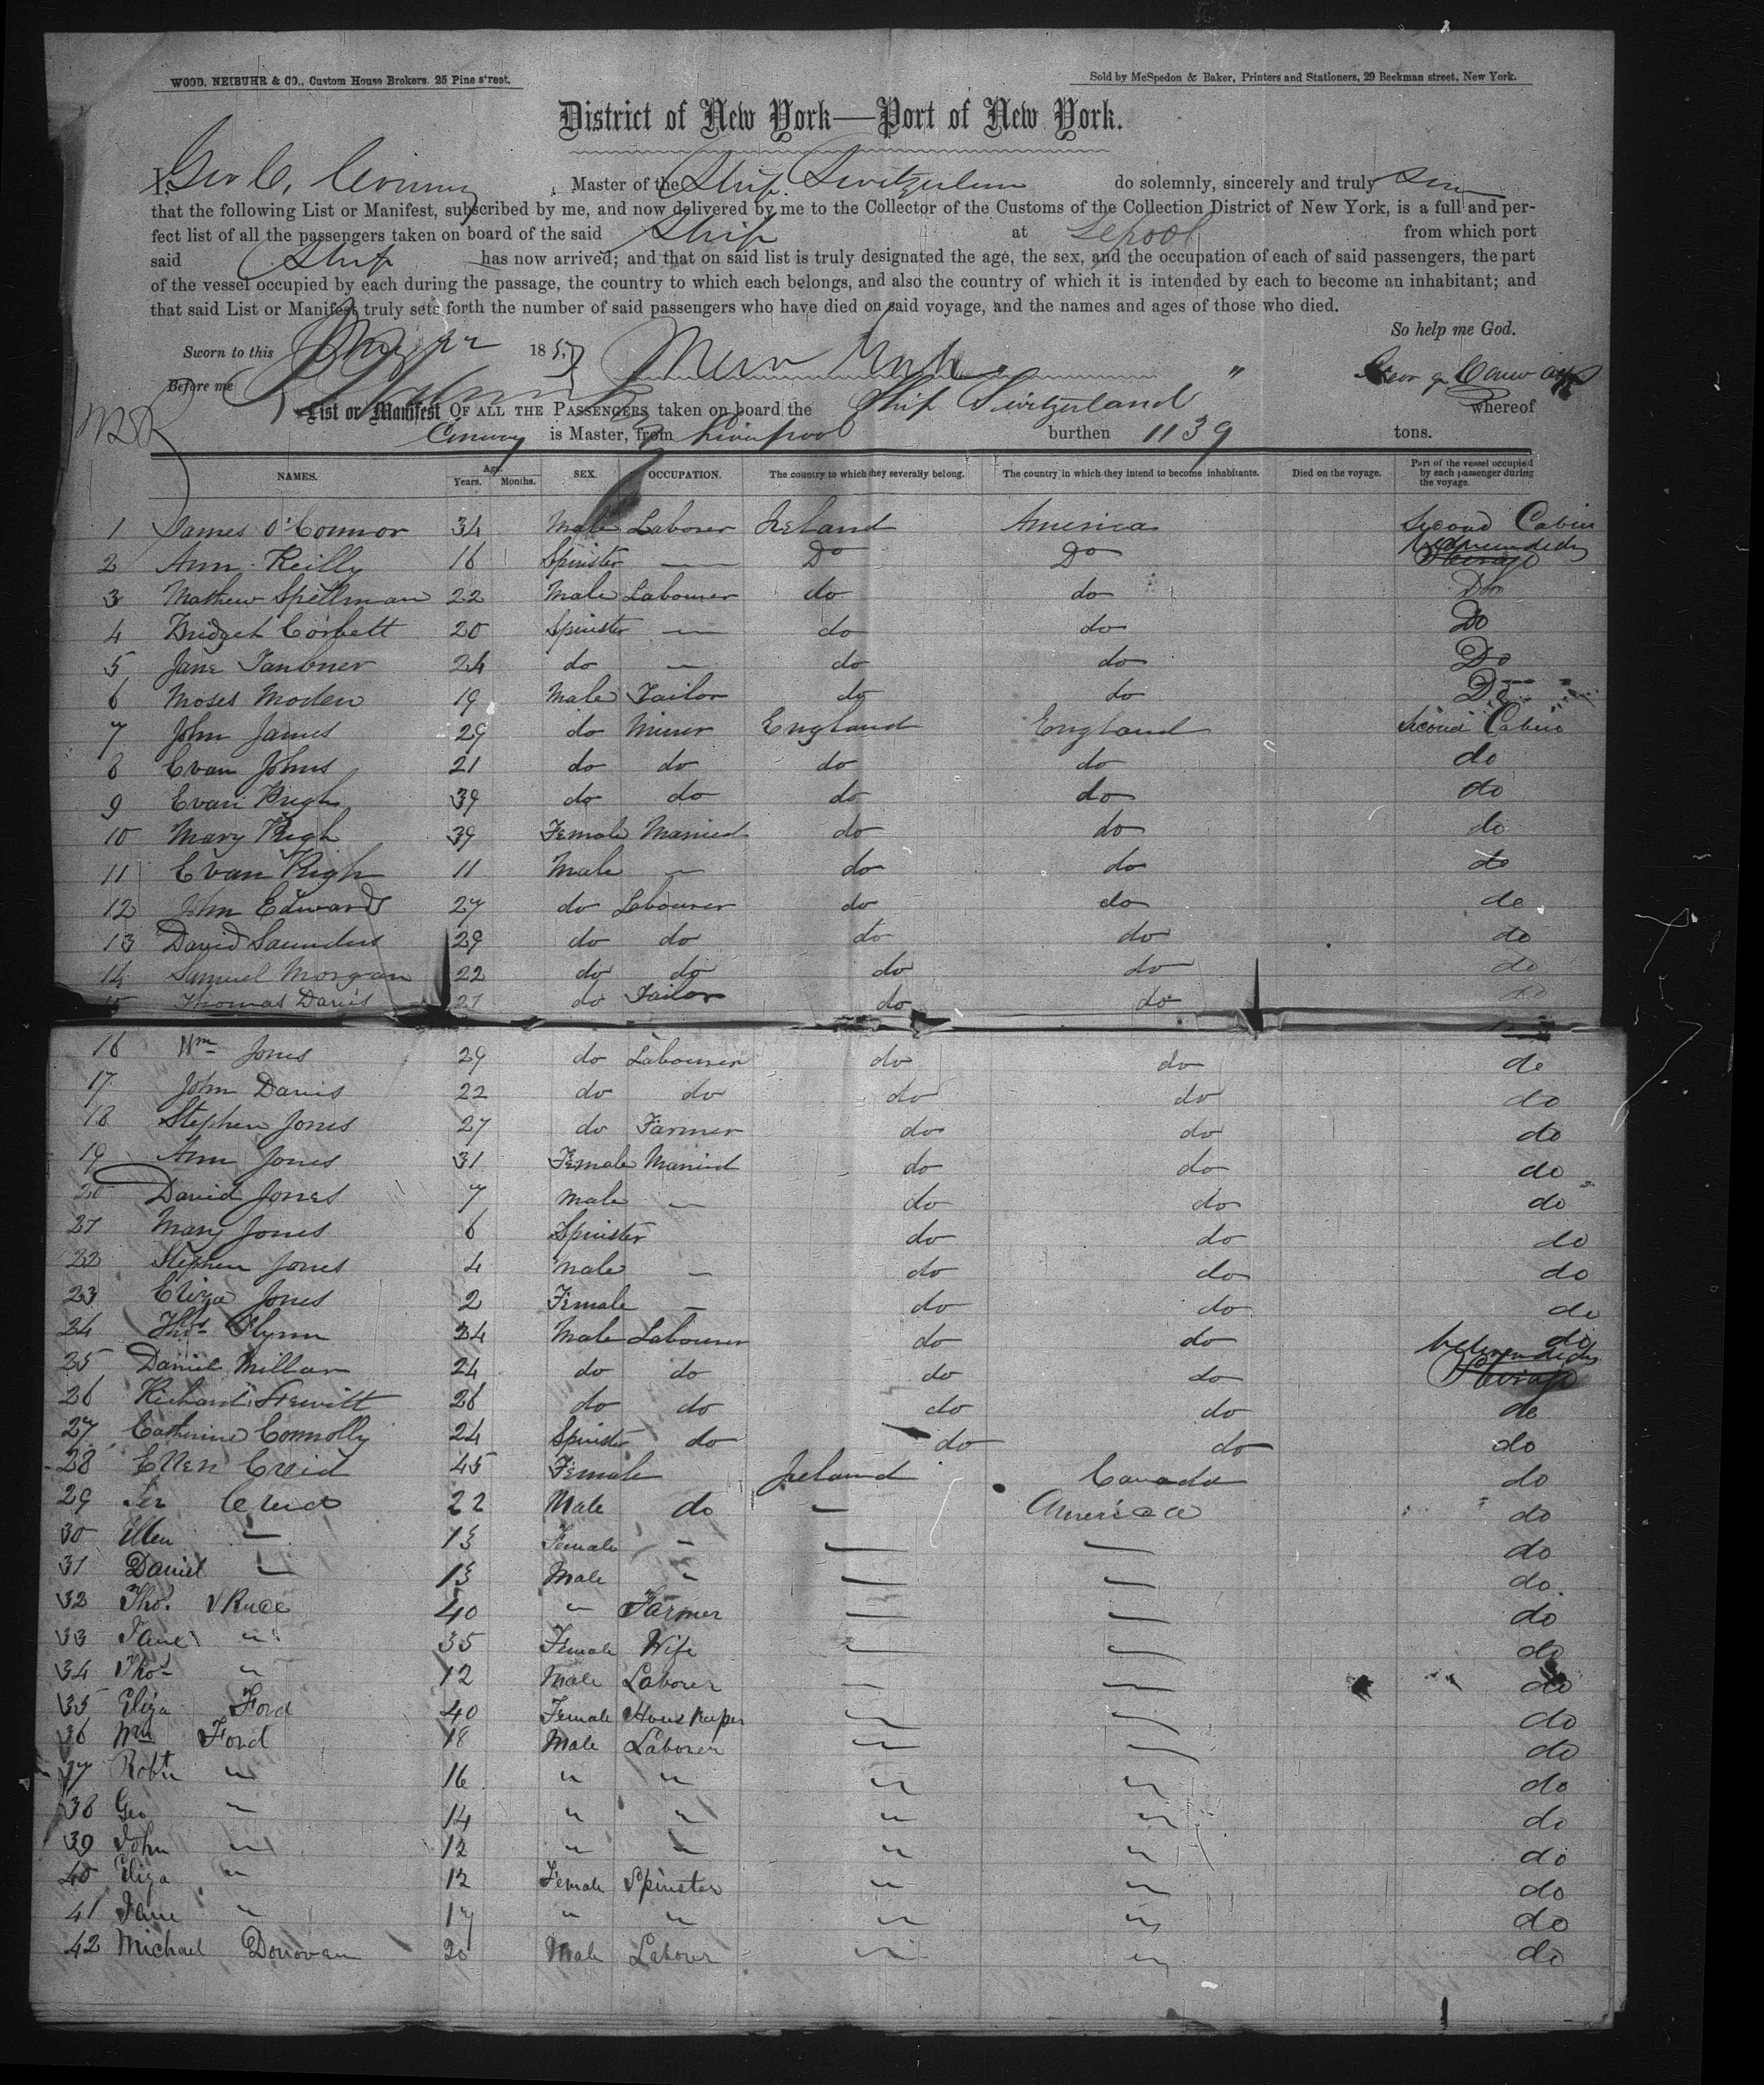 WOOD, NEIBUHR & CO., Custom House Brokers. 25 Pine street.
Sold by McSpedon & Baker, Printers and Stationers, 29 Beekman street, New York.
District of New York—Port of New York.
I, Geo C. Master of the Ship Switzerland do solemnly, sincerely and truly
that the following List or Manifest, subscribed by me, and now delivered by me to the Collector of the Customs of the Collection District of New York, is a full and per-
fect list of all the passengers taken on board of the said Ship at Lpool from which port
said Ship has now arrived; and that on said list is truly designated the age, the sex, and the occupation of each of said passengers, the part
of the vessel occupied by each during the passage, the country to which each belongs, and also the country of which it is intended by each to become an inhabitant; and
that said List or Manifest truly sets forth the number of said passengers who have died on said voyage, and the names and ages of those who died.
So help me God.
Sworn to this 22 1857
Before me
List or Manifest OF ALL THE PASSENGERS taken on board the Ship Switzerland whereof
is Master, from Liverpool burthen 1139 tons.
NAMES. Age. Years. Months. SEX. OCCUPATION. The country to which they severally belong. The country in which they intend to become inhabitants. Died on the voyage. Part of the vessel occupied by each passenger during the voyage.
1 James O'Connor 34 Male Laborer Ireland America Second Cabin
2 Ann Reilly 16 Spinster — Do Do
3 Mathew Spellman 22 Male Labourer do do Do
4 Bridget Corbett 20 Spinster — do do Do
5 Jane Faulkner 24 do — do do Do
6 Moses Moden 19 Male Tailor do do Do
7 John James 29 do Miner England England Second Cabin
8 Evan Johns 21 do do do do do
9 Evan Pugh 39 do do do do do
10 Mary Pugh 39 Female Married do do do
11 Evan Pugh 11 Male — do do do
12 John Edwards 27 do Labourer do do do
13 David Saunders 29 do do do do do
14 Samuel Morgan 22 do do do do do
15 Thomas Davis 27 do Tailor do do do
16 Wm Jones 29 do Labourer do do do
17 John Davis 22 do do do do do
18 Stephen Jones 27 do Farmer do do do
19 Ann Jones 31 Female Married do do do
20 David Jones 7 male — do do do
21 Mary Jones 6 Spinster do do do
22 Stephen Jones 4 male — do do do
23 Eliza Jones 2 Female — do do do
24 Thos Flynn 24 Male Labourer do do do
25 Daniel Millar 24 do do do do
26 Richard Hewitt 26 do do do do do
27 Catherine Connolly 24 Spinster do do do do
28 Ellen 45 Female Ireland Canada do
29 22 Male do — America do
30 Ellen — 13 Female — — — do
31 Daniel — 13 Male " — — do
32 Thos 40 " Farmer — — do
33 Jane " 35 Female Wife — — do
34 Thos " 12 Male Laborer — — do
35 Eliza Ford 40 Female — — do
36 Wm Ford 18 Male Laborer — — do
37 Robt " 16 " " " " do
38 Geo " 14 " " " " do
39 John " 12 " " " " do
40 Eliza " 12 Female Spinster " " do
41 Jane " 17 " " " " do
42 Michael Donovan 20 Male Laborer " " do